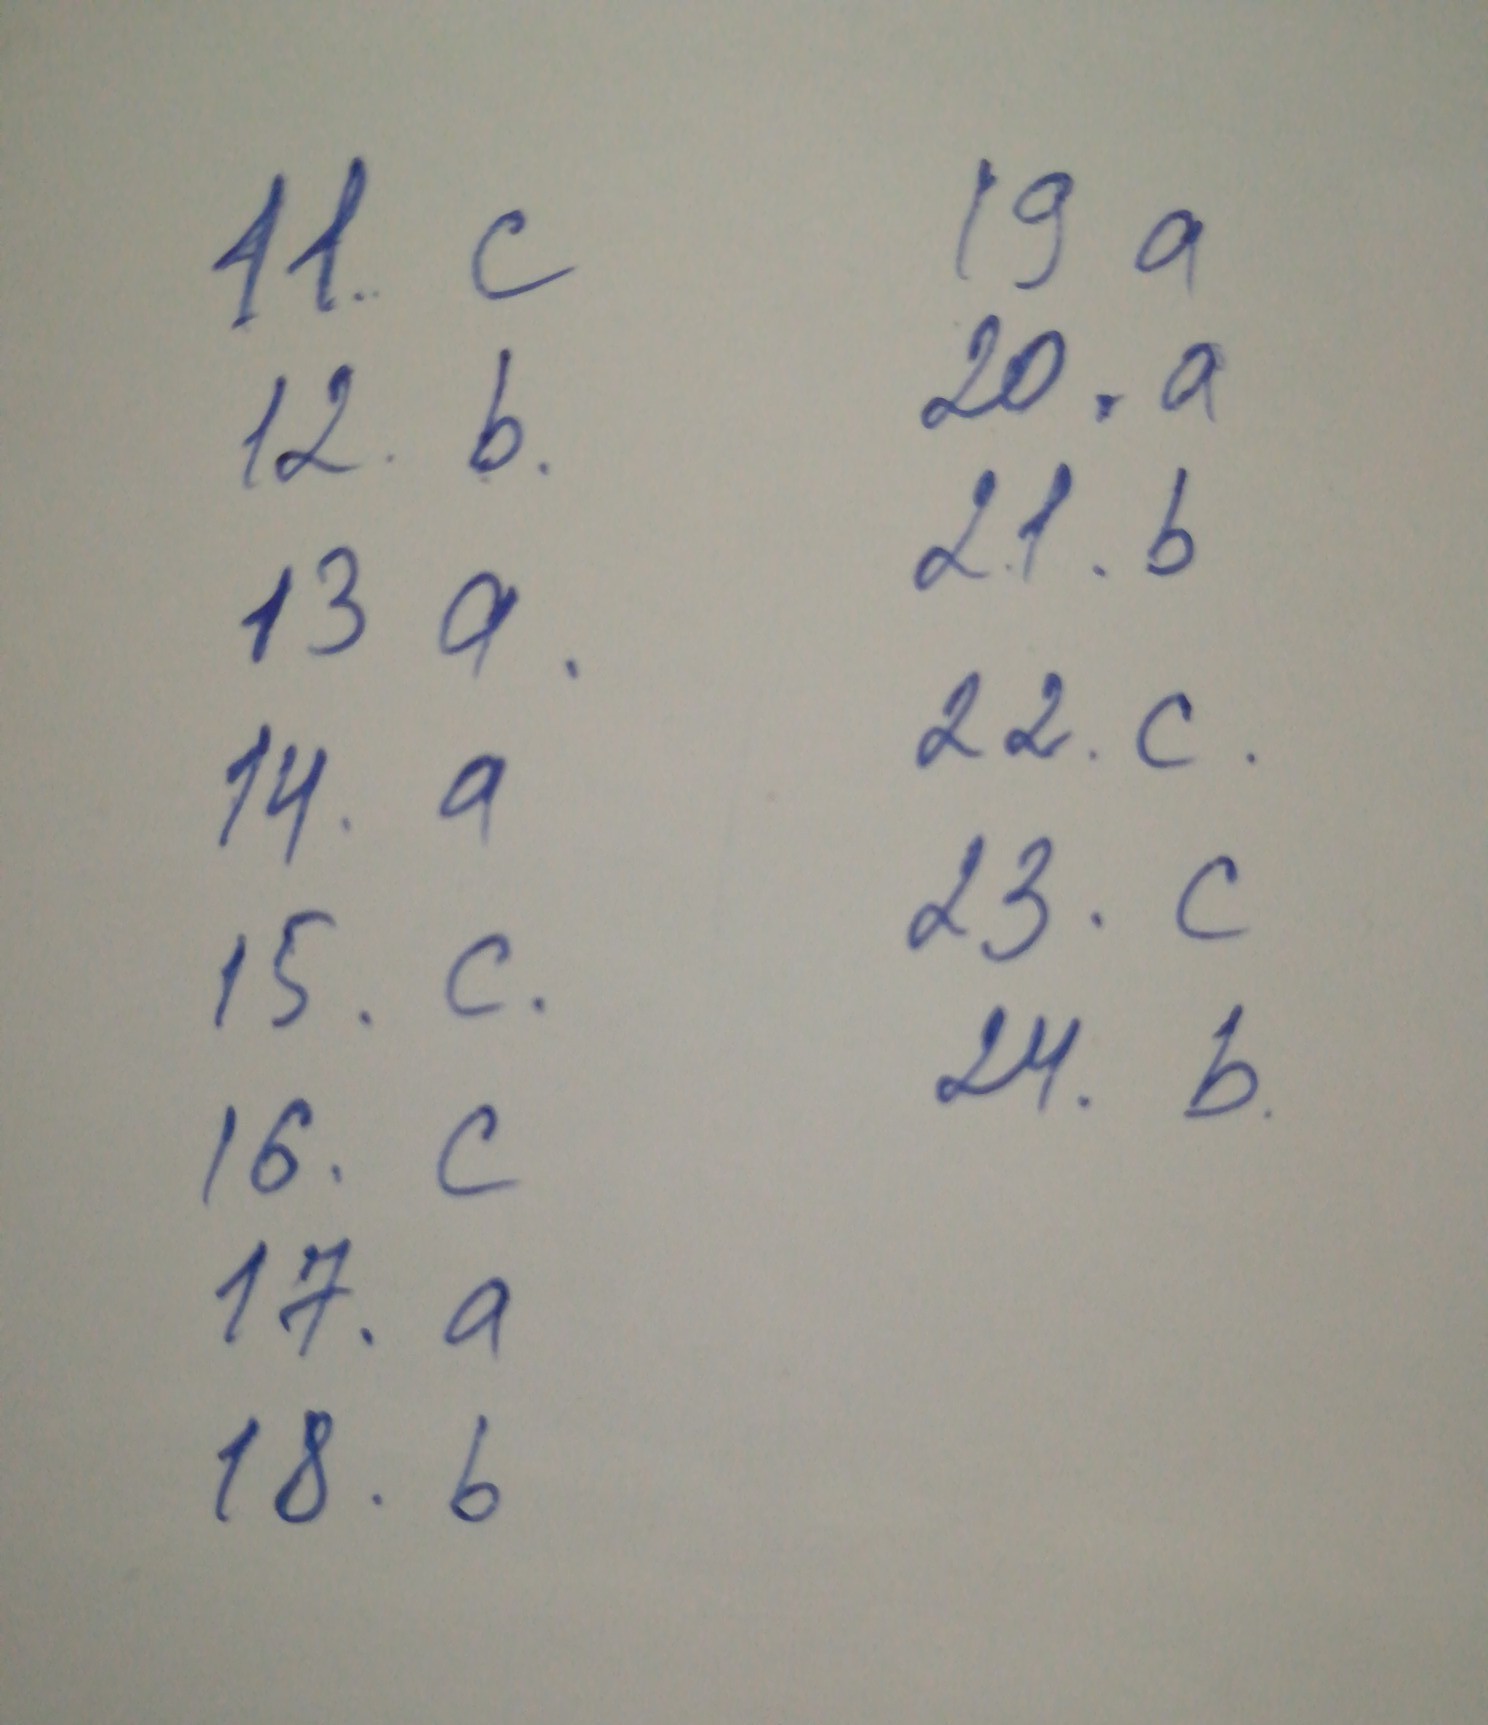 11. c
12. b.
13 a.
14. a
15. c.
16. c
17. a
18. b
19 a
20. a
21. b
22. c.
23. c
24. b.